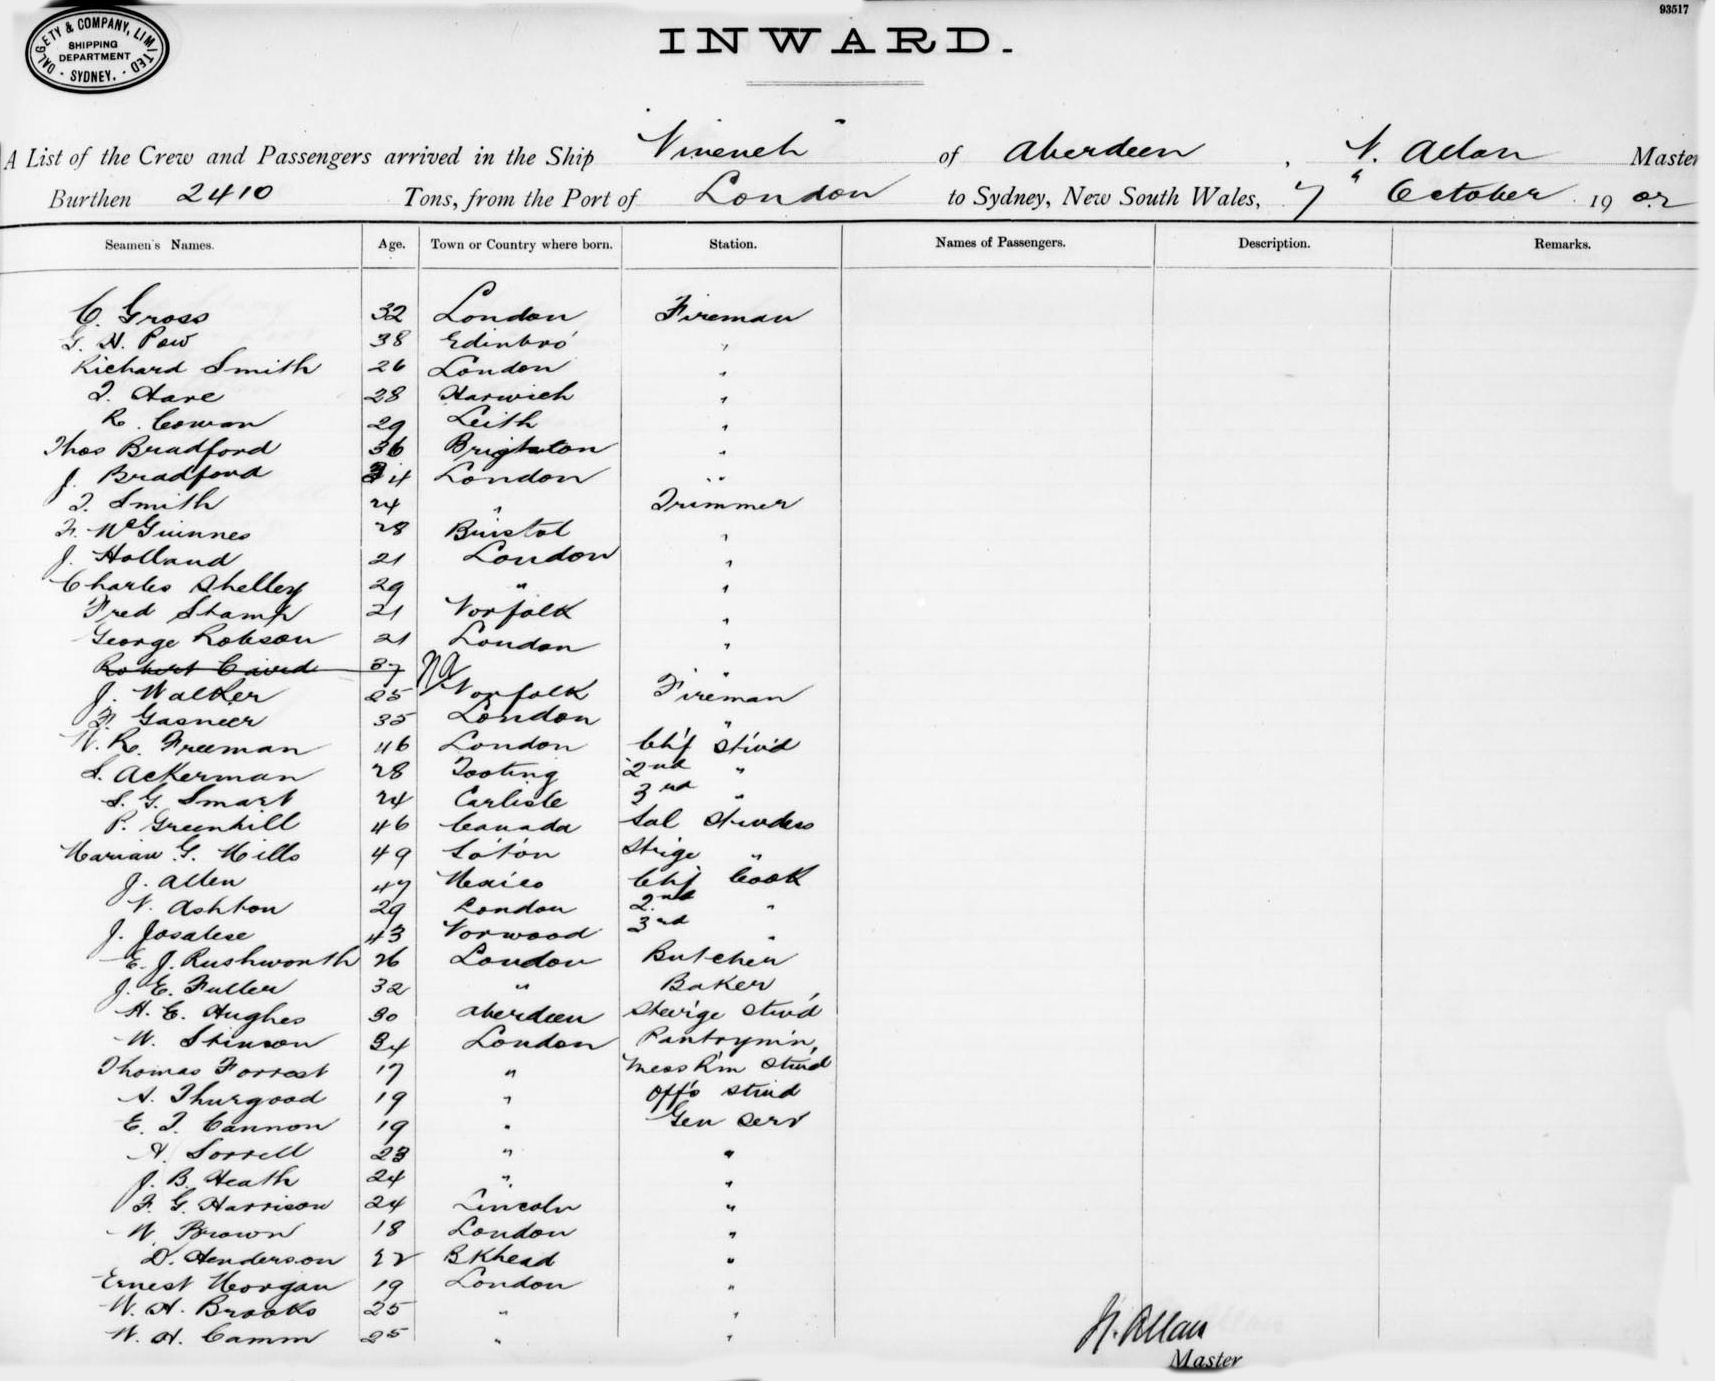 93517
DALGETY & COMPANY, LIMITED
SHIPPING
DEPARTMENT
SYDNEY.
INWARD.
A List of the Crew and Passengers arrived in the Ship "Nineveh" of Aberdeen, N. Allan Master
Burthen 2410 Tons, from the Port of London to Sydney, New South Wales, 7th October 1902
Seamen's Names. Age. Town or Country where born. Station. Names of Passengers. Description. Remarks.
C. Gross 32 London Fireman
G. H. Pow 38 Edinbro' "
Richard Smith 26 London "
T. Hare 28 Harwich "
R. Cowan 29 Leith "
Thos Bradford 36 Brighton "
J. Bradford 34 London "
T. Smith 24 " Trimmer
F. McGuinnes 28 Bristol "
J. Holland 21 London "
Charles Shelley 29 " "
Fred Stamp 21 Norfolk "
George Robson 21 London "
Robert Caird 37 "
J. Walker 25 Norfolk Fireman
F. Gasneer 35 London "
W. R. Freeman 46 London Ch'f Stw'd
S. Ackerman 28 Tooting 2nd "
S. G. Smart 24 Carlisle 3rd "
P. Greenhill 46 Canada Sal Stwdess
Marian G. Mills 49 So'ton Strge "
J. Allen 47 Mexico Ch'f Cook
N. Ashton 29 London 2nd "
J. 43 Norwood 3rd "
E. J. Rushworth 26 London Butcher
J. E. Fuller 32 " Baker
H. E. Hughes 30 Aberdeen Steer'ge Stw'd
W. Stinson 34 London Pantrym'n
Thomas Forrest 17 " Mess R'm Stw'd
A. Thurgood 19 " Off's Stwd
E. T. Cannon 19 " Gen Serv
A. Sorrell 23 " "
J. B. Heath 24 " "
F. G. Harrison 24 Lincoln "
W. Brown 18 London "
D. Henderson 22 B Khead "
Ernest Morgan 19 London "
W. H. Brooks 25 " "
W. H. Camm 25 " "
N. Allan
Master